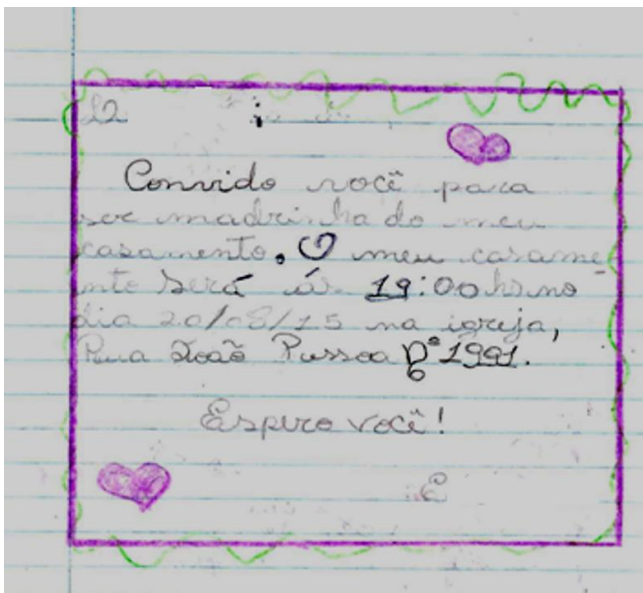 Convido você para
ser madrinha do meu
casamento. O meu casame_
nto será ás 19:00 hs no
dia 20/08/15 na igreja,
Rua João Pussoa nº 1991.
Espero você!